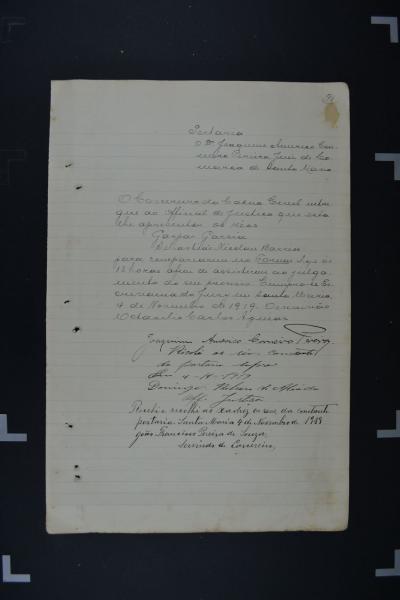 Portaria
O Dr Joaquim Americo Car-
neiro Pereira, Juiz de Co-
marca de Santa Maria
O Carcereiro da Cadea Civil entre-
gue ao Official de Justiça que esta
lhe apresentar os réos
Gaspar Garcia
Nicolau Barros
para comparecerem no Forum hoje ás
12 horas afim de assistirem ao julga-
mento do seu processo Cumpra-se
Santa Maria,
4 de Novembro de 1919. O escrivão
Octacilio Carlos
Joaquim Americo Carneiro Pereira
os réos constante
da portaria supra
Em 4-11-1919
Domingos de Almeida
Off. Justiça
Recebi e recolhi ao xadrez os réos da constante
portaria. Santa Maria 4 de Novembro de 1919
João Francisco Pereira de Souza,
Servindo de Carcereiro,